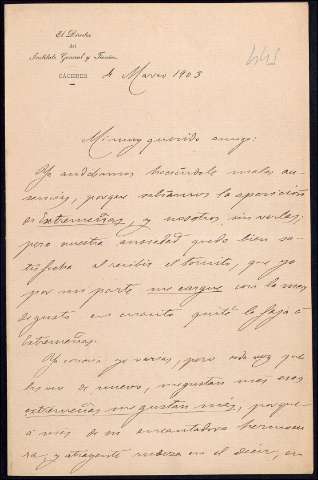 El Director
del
Instituto General y Técnico
CÁCERES
Marzo 1903
Mi muy querido amigo:
Ya andábamos haciéndole malas au-
sencias, porque sabíamos la aparición
de Extremeñas, y nosotros sin verlas;
pero nuestra ansiedad quedó bien sa-
tisfecha al recibir el tomito, que yo
por mi parte me cargué con la mar
de gusto en cuanto quité la faja á
Extremeñas.
Ya conocía yo varias, pero cada vez que
las de nuevo, me gustan más esas
extremeñas me gustan más, porque
á más de su encantadora hermosu-
ra, y atrayente en el decir, en